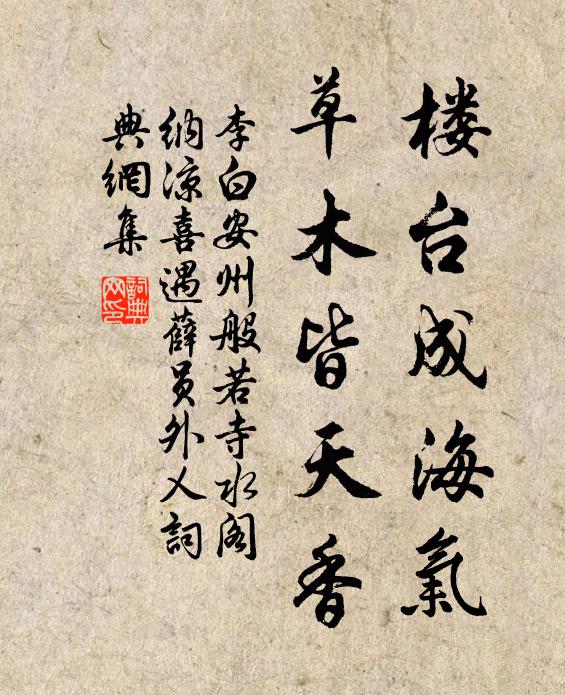 楼台成海氣
草木皆天香
李白安州般若寺水阁
纳凉喜遇薛员外乂詞
典網集
詞典
网印